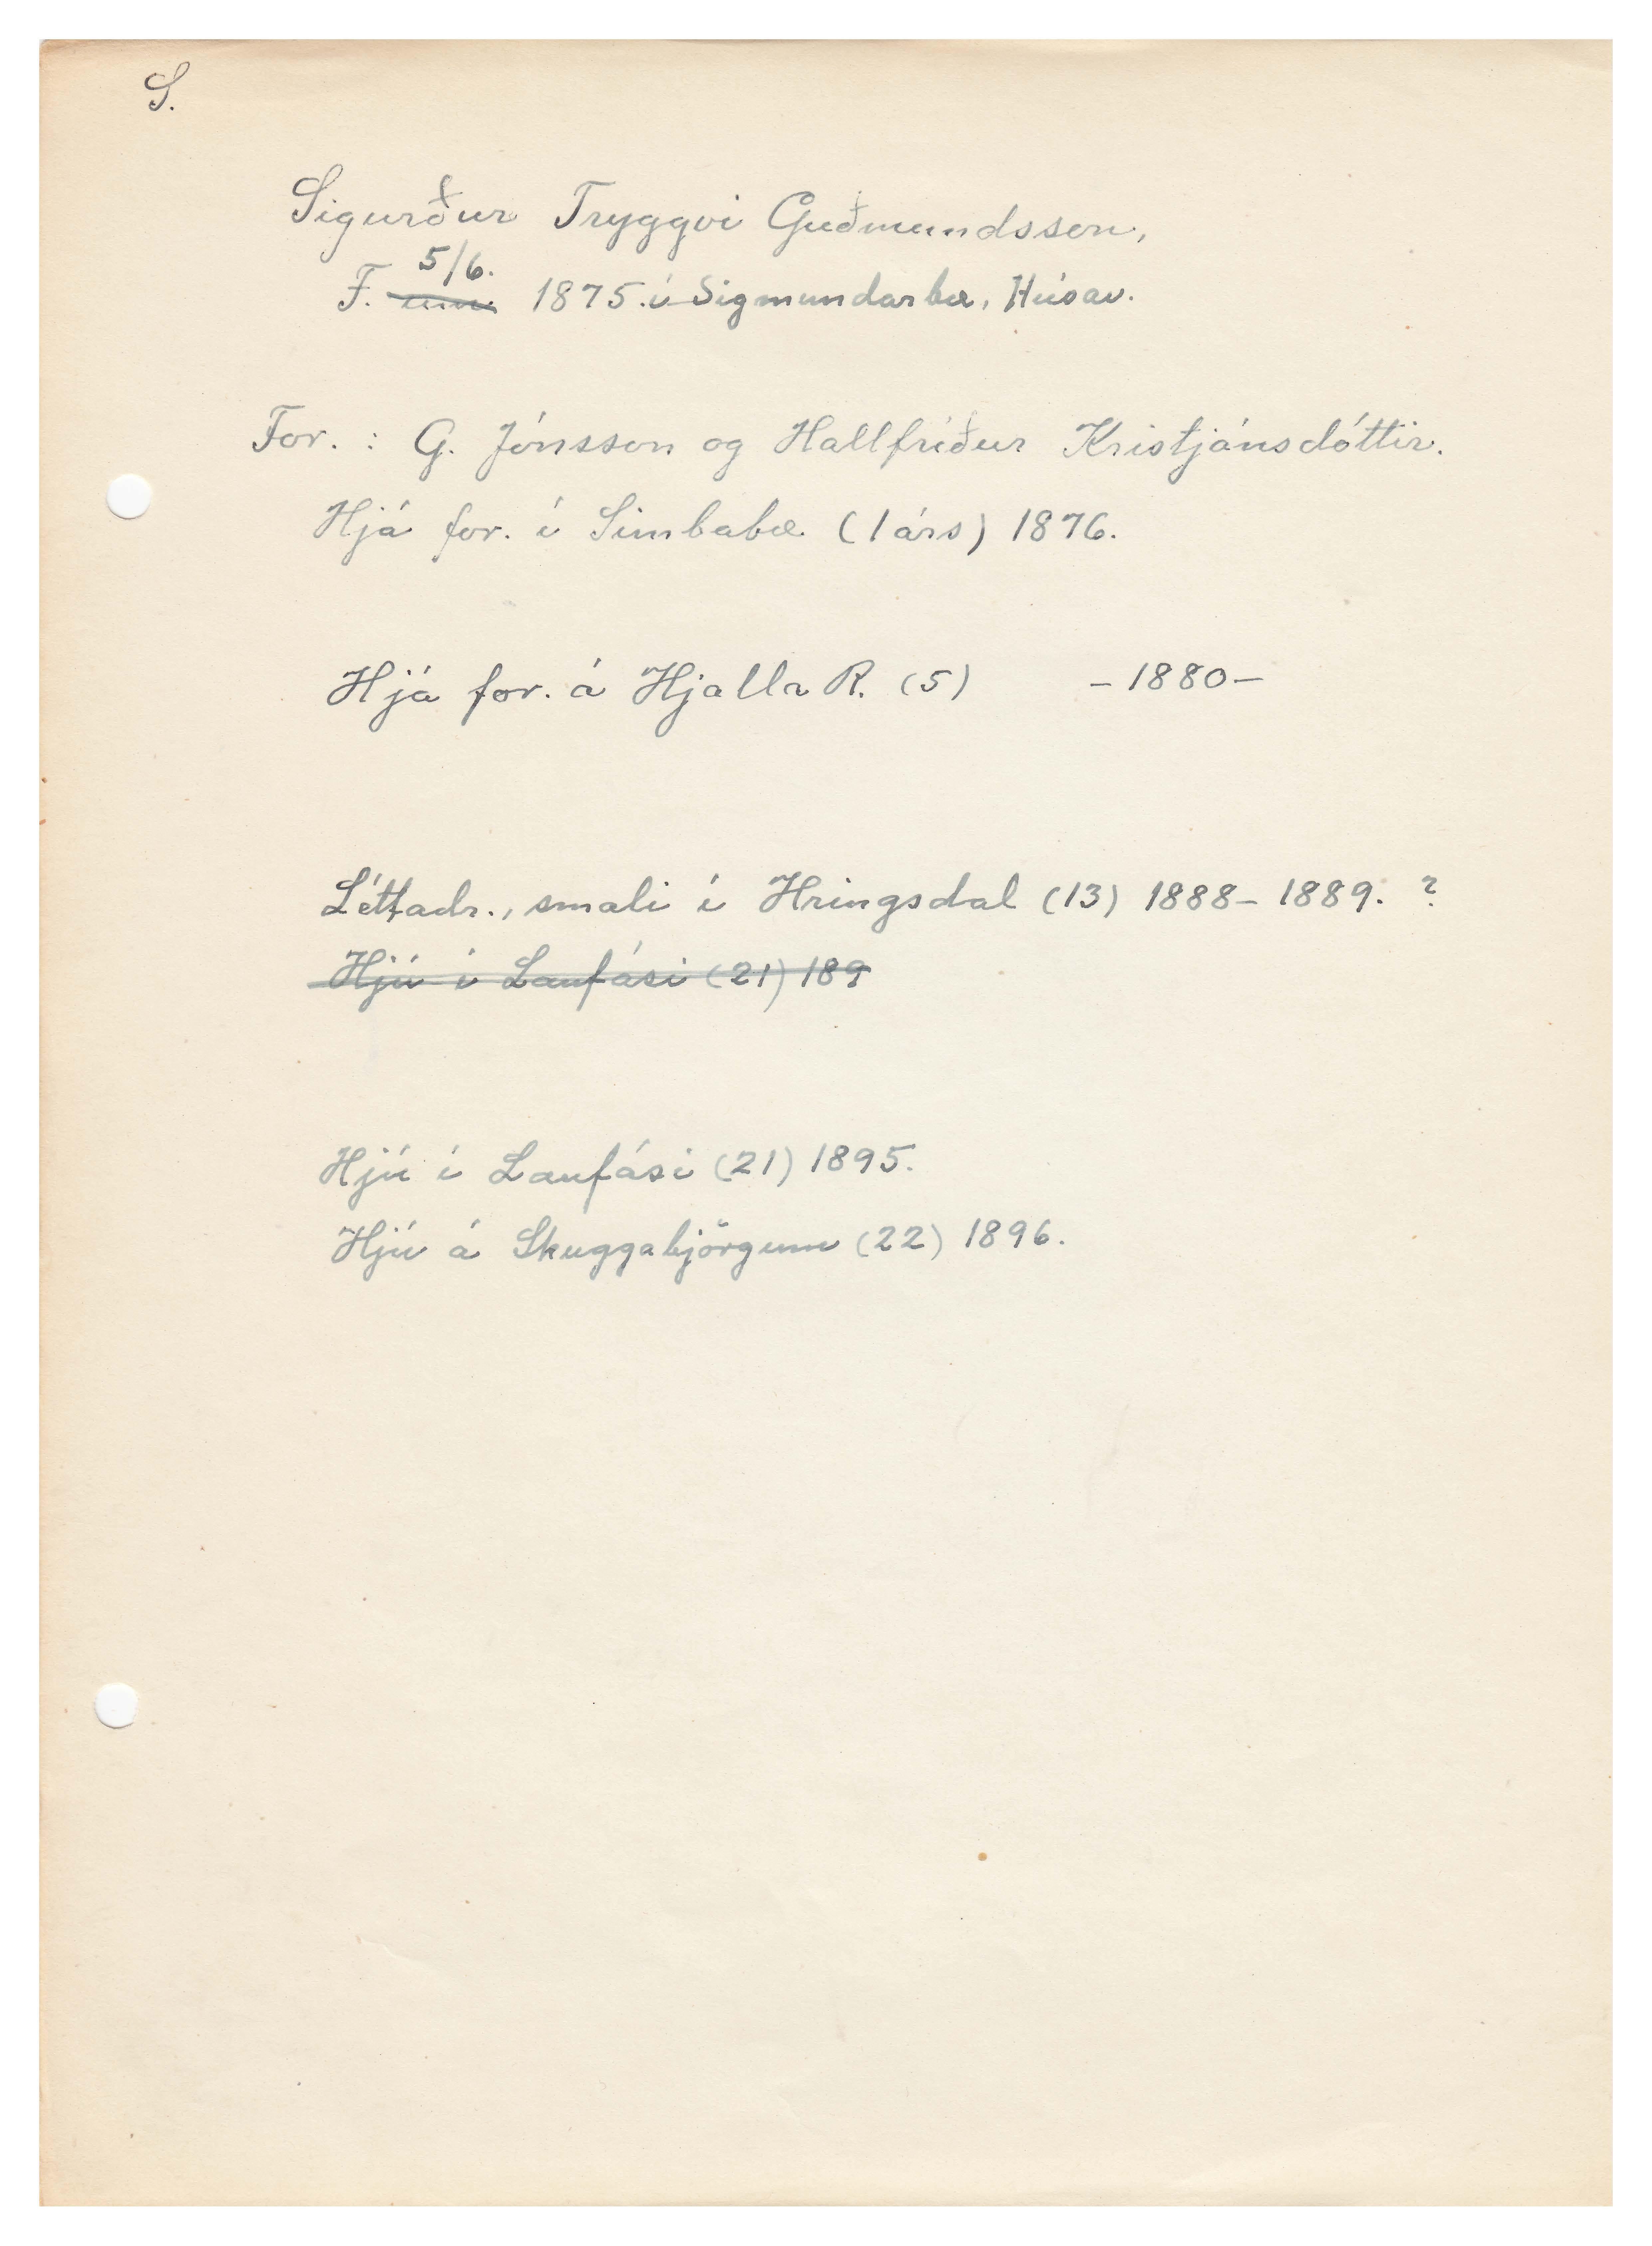 S.
Sigurður Tryggvi Guðmundsson,
5/6.
F. um 1875. í Sigmundarbæ, Húsav.
For. : G. Jónsson og Hallfríður Kristjánsdóttir.
Hjá for. í Simbabæ (1 árs) 1876.
Hjá for. á Hjalla R. (5) - 1880 -
Léttadr., smali í Hringsdal (13) 1888 - 1889. ?
Hjú í Laufási (21) 189
Hjú í Laufási (21) 1895.
Hjú á Skuggabjörgum (22) 1896.